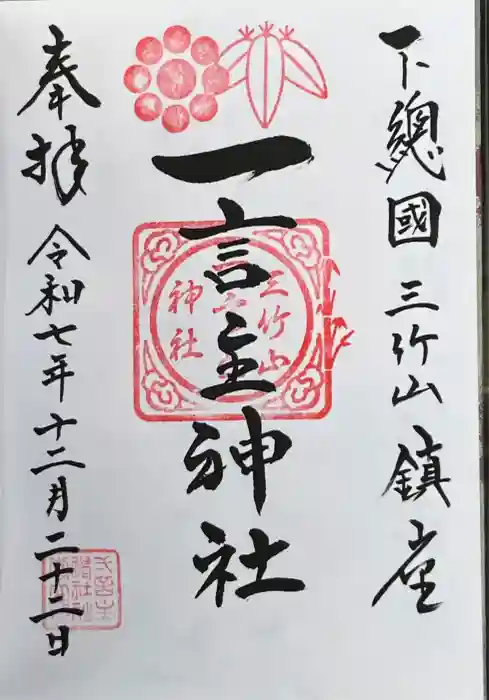 下總國三竹山鎮座
一言主神社
三竹山
神社
奉拝 令和七年十二月二十二日